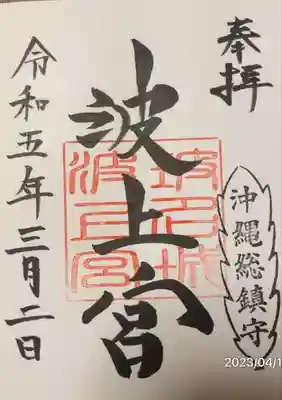 奉拝
沖縄総鎮守
波上宮
令和五年三月二日
2023/04/1